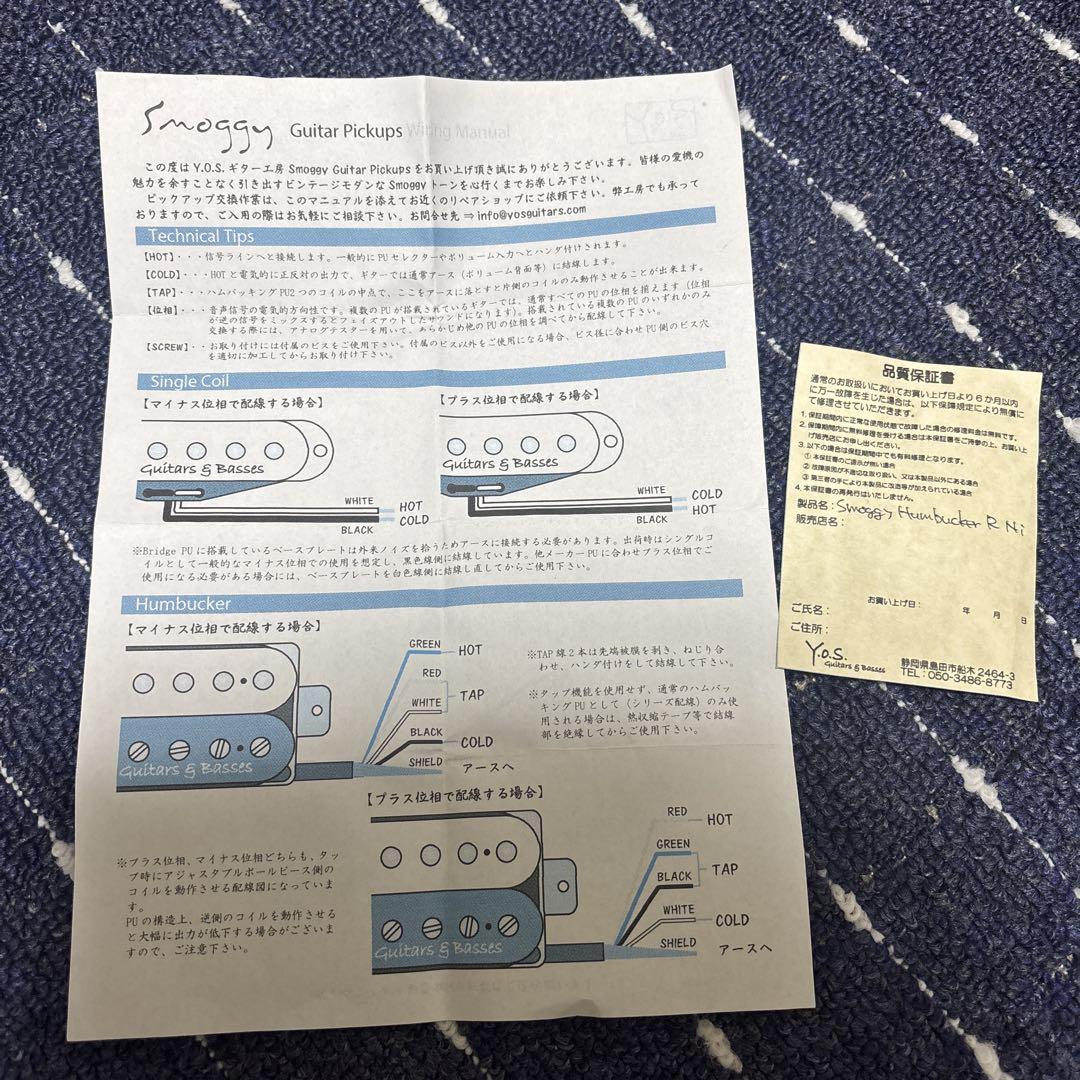 Smoggy Guitar Pickups Wiring Manual
Y.O.S.
この度はY.O.S.ギター工房 Smoggy Guitar Pickupsをお買い上げ頂き誠にありがとうございます。皆様の愛機の
魅力を余すことなく引き出すビンテージモダンなSmoggyトーンを心行くまでお楽しみ下さい。
ピックアップ交換作業は、このマニュアルを添えてお近くのリペアショップにご依頼下さい。弊工房でも承って
おりますので、ご入用の際はお気軽にご相談下さい。お問合せ先 ⇒ info@yosguitars.com
Technical Tips
【HOT】・・・信号ラインへと接続します。一般的にPUセレクターやボリューム入力へとハンダ付けされます。
【COLD】・・・HOTと電気的に正反対の出力で、ギターでは通常アース（ボリューム背面等）に結線します。
【TAP】・・・ハムバッキングPU2つのコイルの中点で、ここをアースに落とすと片側のコイルのみ動作させることが出来ます。
【位相】・・・音声信号の電気的方向性です。複数のPUが搭載されているギターでは、通常すべてのPUの位相を揃えます（位相
が逆の信号をミックスするとフェイズアウトしたサウンドになります）。搭載されている複数のPUのいずれかのみ
交換する際には、アナログテスターを用いて、あらかじめ他のPUの位相を調べてから配線して下さい。
【SCREW】・・お取り付けには付属のビスをご使用下さい。付属のビス以外をご使用になる場合、ビス径に合わせPU側のビス穴
を適切に加工してからお取り付け下さい。
Single Coil
【マイナス位相で配線する場合】
【プラス位相で配線する場合】
Guitars & Basses
Guitars & Basses
WHITE
HOT
COLD
BLACK
WHITE
COLD
HOT
BLACK
※Bridge PUに搭載しているベースプレートは外来ノイズを拾うためアースに接続する必要があります。出荷時はシングルコ
イルとして一般的なマイナス位相での使用を想定し、黒色線側に結線しています。他メーカーPUに合わせプラス位相でご
使用になる必要がある場合には、ベースプレートを白色線側に結線し直してからご使用下さい。
Humbucker
【マイナス位相で配線する場合】
Guitars & Basses
GREEN
HOT
RED
TAP
WHITE
BLACK
COLD
SHIELD
アースへ
※TAP線2本は先端被膜を剥き、ねじり合
わせ、ハンダ付けをして結線して下さい。
※タップ機能を使用せず、通常のハムバッ
キングPUとして（シリーズ配線）のみ使
用される場合は、熱収縮テープ等で結線
部を絶縁してからご使用下さい。
【プラス位相で配線する場合】
Guitars & Basses
RED
HOT
GREEN
TAP
BLACK
WHITE
COLD
SHIELD
アースへ
※プラス位相、マイナス位相どちらも、タッ
プ時にアジャスタブルポールピース側の
コイルを動作させる配線図になっていま
す。
PUの構造上、逆側のコイルを動作させる
と大幅に出力が低下する場合がございま
すので、ご注意下さい。
品質保証書
通常のお取扱いにおいてお買い上げ日より6か月以内
に万一故障を生じた場合は、以下保障規定により無償に
て修理させていただきます。
1. 保証期間内に正常な使用状態で故障した場合の修理料金は無料です。
2. 保障期間内に無料修理を受ける場合は本保証書をご持参の上、お買い上
げ販売店にお申し出ください。
3. 以下の場合は保証期間中でも有料修理となります。
① 本保証書のご提示が無い場合
② 故障原因が不適切な取り扱い、又は本製品以外にある場合
③ 第三者の手により本製品に改造等が加えられている場合
4. 本保証書の再発行はいたしません。
製品名：Smoggy Humbucker R Ni
販売店名：
お買い上げ日： 年 月 日
ご氏名：
ご住所：
Y.O.S.
Guitars & Basses
静岡県島田市船木2464-3
TEL：050-3486-8773